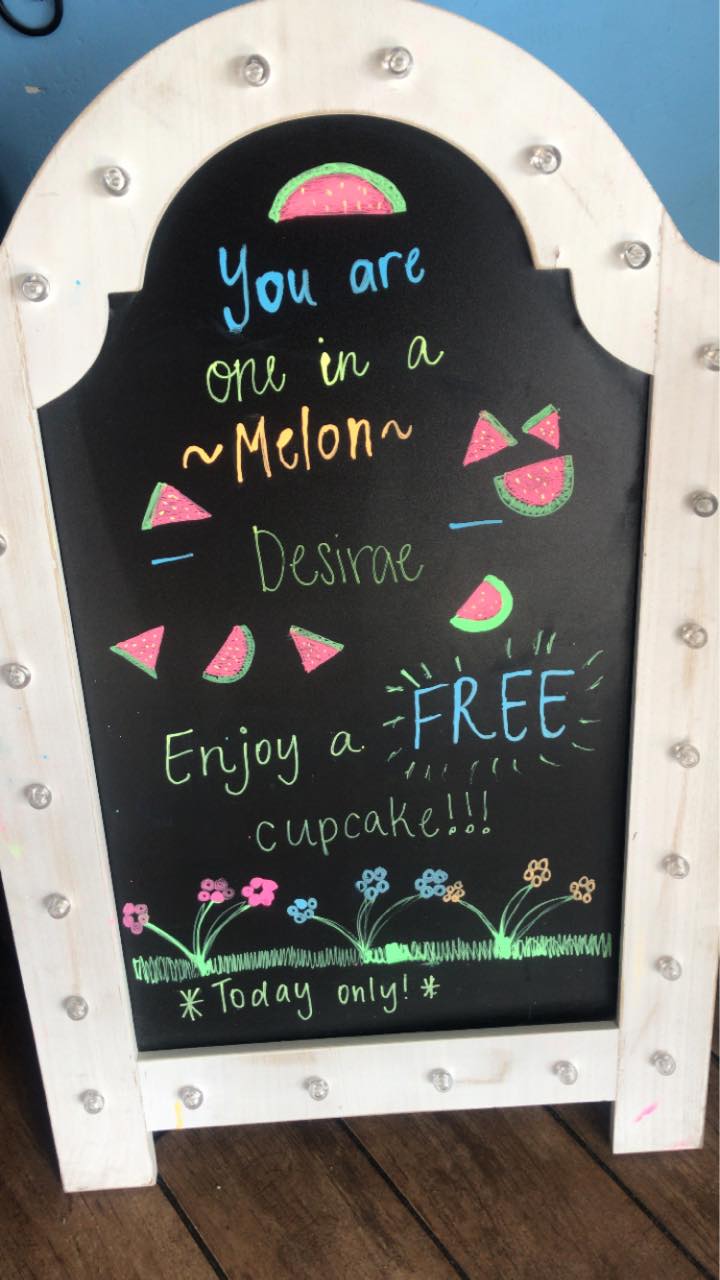 You are
one in a
~Melon~
- Desirae -
Enjoy a FREE
cupcake!!!
*Today only!*